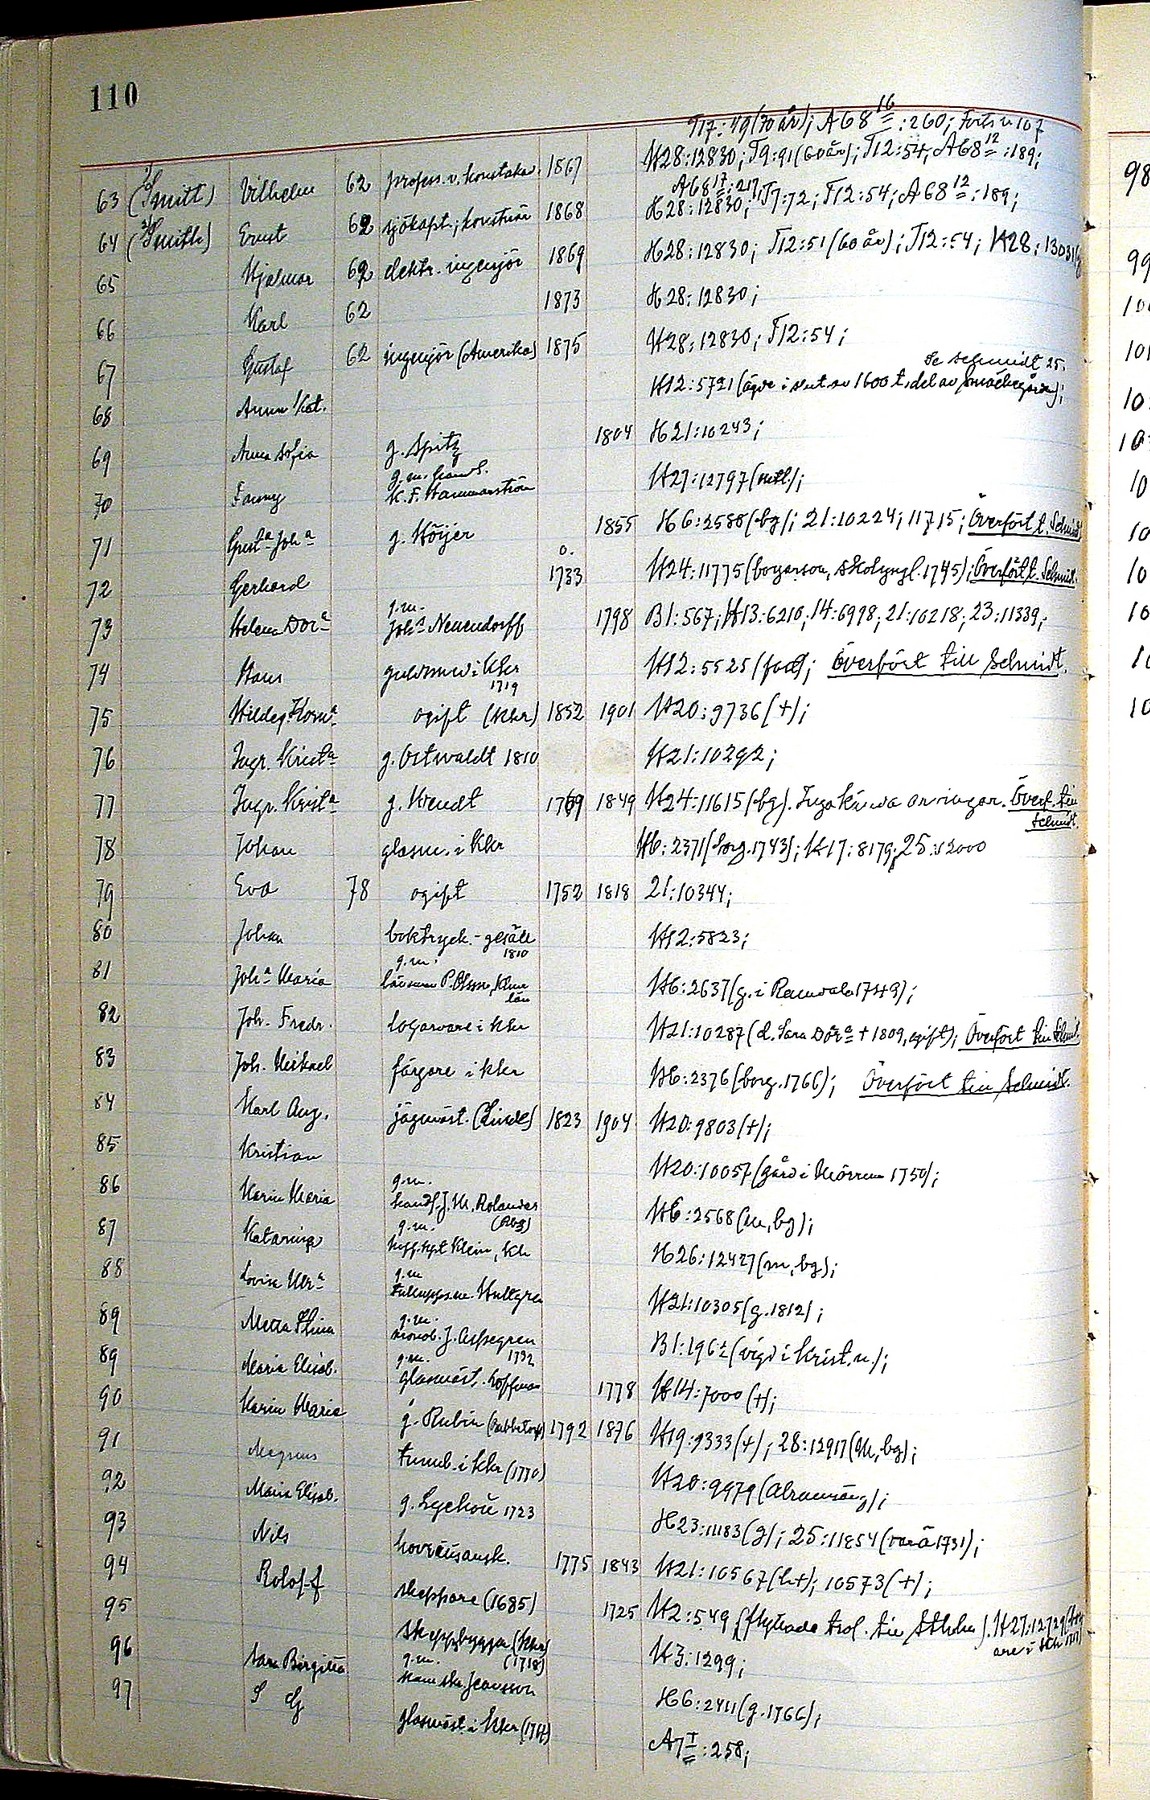 110
T17:49 (70 år); A68 16:260; forts. s. 107
63 (Smitt) Vilhelm 62 profess. v. konstakad. 1867 H28:12830; T9:91 (60 år); T12:54; A68 12:189;
A68 17:217;
64 (Smith) Ernst 62 sjökapt.; konstnär 1868 H28:12830; T7:72; T12:54; A68 12:189;
65 Hjalmar 62 elektr. ingenjör 1869 H28:12830; T12:51 (60 år); T12:54; H28:13031
66 Karl 62 1873 H28:12830;
67 Gustaf 62 ingenjör (Amerika) 1875 H28:12830; T12:54;
Se Schmidt 25.
68 Anna Kat. H12:5721 (ägde i slut av 1600 t. del av
69 Anna Sofia g. Spitz 1804 H21:10243;
70 Fanny g.m. handl. K. F. Hammarström H27:12797
71 Gust:a Joh:a g. Höijer 1855 H6:2588 (bg); 21:10224; 11715; Överfört t. Schmidt
72 Gerhard o. 1733 H24:11775 (borgarson, skolyngl. 1745); Överfört t. Schmidt.
73 Helena Dor:a g.m. Joh:s Neuendorff 1798 B1:567; H13:6210; 14:6998; 21:10218; 23:11339;
74 Hans guldsmed i Kkr 1719 H12:5525 (fadd); Överfört till Schmidt.
75 Hildeg. Korn:a ogift (Kkr) 1852 1901 H20:9736 (+);
76 Ingr. Krist:a g. Ostwaldt 1810 H21:10292;
77 Ingr. Krist:a g. Wendt 1769 1849 H24:11615 (bg). Inga kända arvingar. Överf. till
Schmidt.
78 Johan glasm. i Kkr H6:2371 (borg. 1743); H17:8179; 25:12000
79 Eva 78 ogift 1752 1818 21:10344;
80 Johan boktryck.-gesäll 1810 H12:5823;
81 Joh:a Maria g.m. länsman P. Olsson, län H6:2637 (g. i 1749);
82 Joh. Fredr. logarvare i Kkr H21:10287 (d. Sara Dor:a + 1809, ogift); Överfört till Schmidt
83 Joh. Mikael färgare i Kkr H6:2376 (borg. 1766); Överfört till Schmidt.
84 Karl Aug. jägmäst. (Linde) 1823 1904 H20:9803 (+);
85 Kristian H20:10057 (gård i Mörrum 1750);
86 Karin Maria g.m. handl. J. M. Rolander H6:2568 (m, bg);
87 Katarina g.m. Klein, Kkr H26:12427 (m, bg);
88 Lovisa Ulr:a g.m. Hultgren H21:10305 (g. 1812);
89 Metta Stina g.m. J. Aspegren 1792 B1:1962 (vigd i Krist.n.);
89 Maria Elisab. g.m. glasmäst. Hoffman 1778 H14:7000 (+);
90 Karin Maria g. Rubin 1792 1876 H19:9333 (+); 28:12917 (M, bg);
91 Magnus tunnb. i Kkr (1770) H20:9979
92 Maria Elisab. g. Lychou 1723 H23:11183 (g); 25:11854 (1731);
93 Nils hovrättsausk. 1775 1843 H21:10567 (h+); 10573 (+);
94 Roloff skeppare (1685) 1725 H2:549 (flyttade trol. till Sthlm). H27:12729
95 skeppsbygg. (Kkr) (1718) H3:1299;
96 Sara Birgitta g.m. Jeansson H6:2411 (g. 1766);
97 S G glasmäst. i Kkr A7 I:258;
98
99